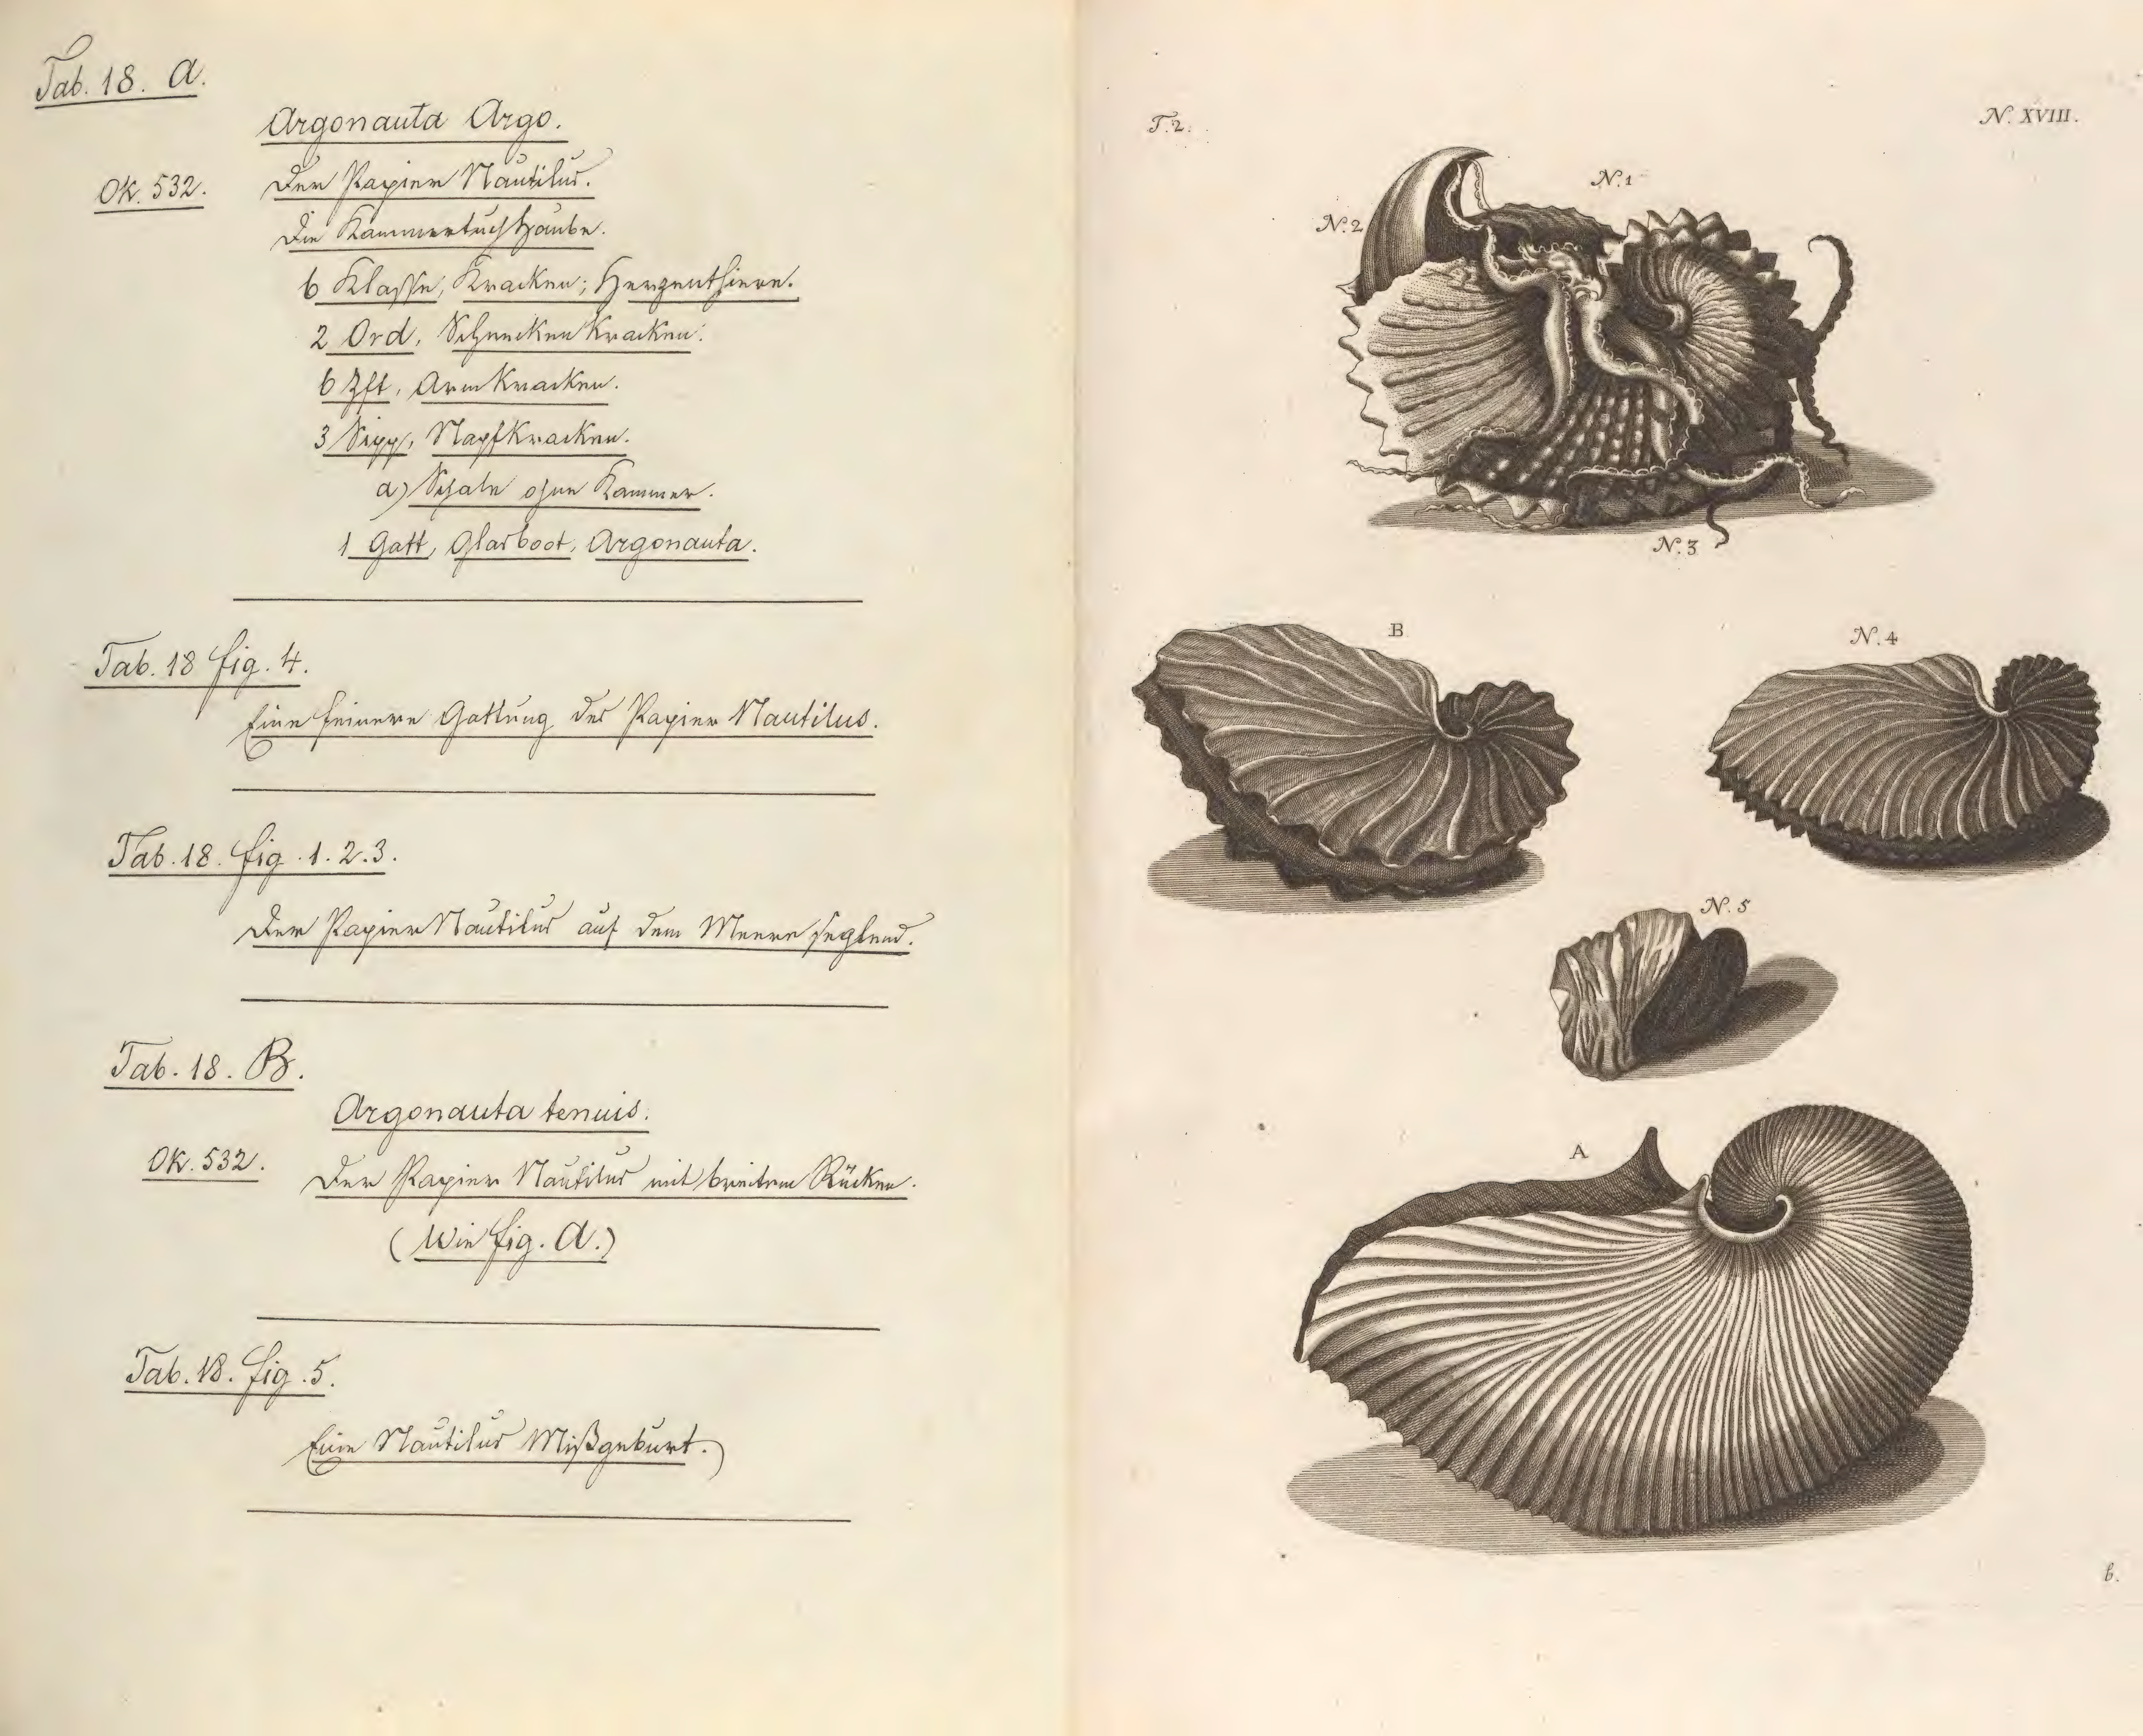 Tab. 18. A.
Argonauta Argo.
Ok. 532.
Der Papier Nautilus.
Die Kammertuchhaube.
6 Klasse, Kracken; Herzenthiere.
2 Ord, Schnecken Kracken:
6 Zft, Armkracken.
3 Sipp, Napfkracken.
a) Schale ohne Kammer.
1 Gatt, Glasboot, Argonauta.
Tab. 18 fig. 4.
Eine feinere Gattung des Papier Nautilus.
Tab. 18. fig. 1. 2. 3.
Der Papier Nautilus auf dem Meere seglend.
Tab. 18. B.
Argonauta tenuis.
Ok. 532.
Der Papier Nautilus mit breitem Rücken.
(Wie fig. A.)
Tab. 18. fig. 5.
Eine Nautilus Mißgeburt.
T. 2.
N. XVIII.
N. 1
N. 2
N. 3
B
N. 4
N. 5
A
b.